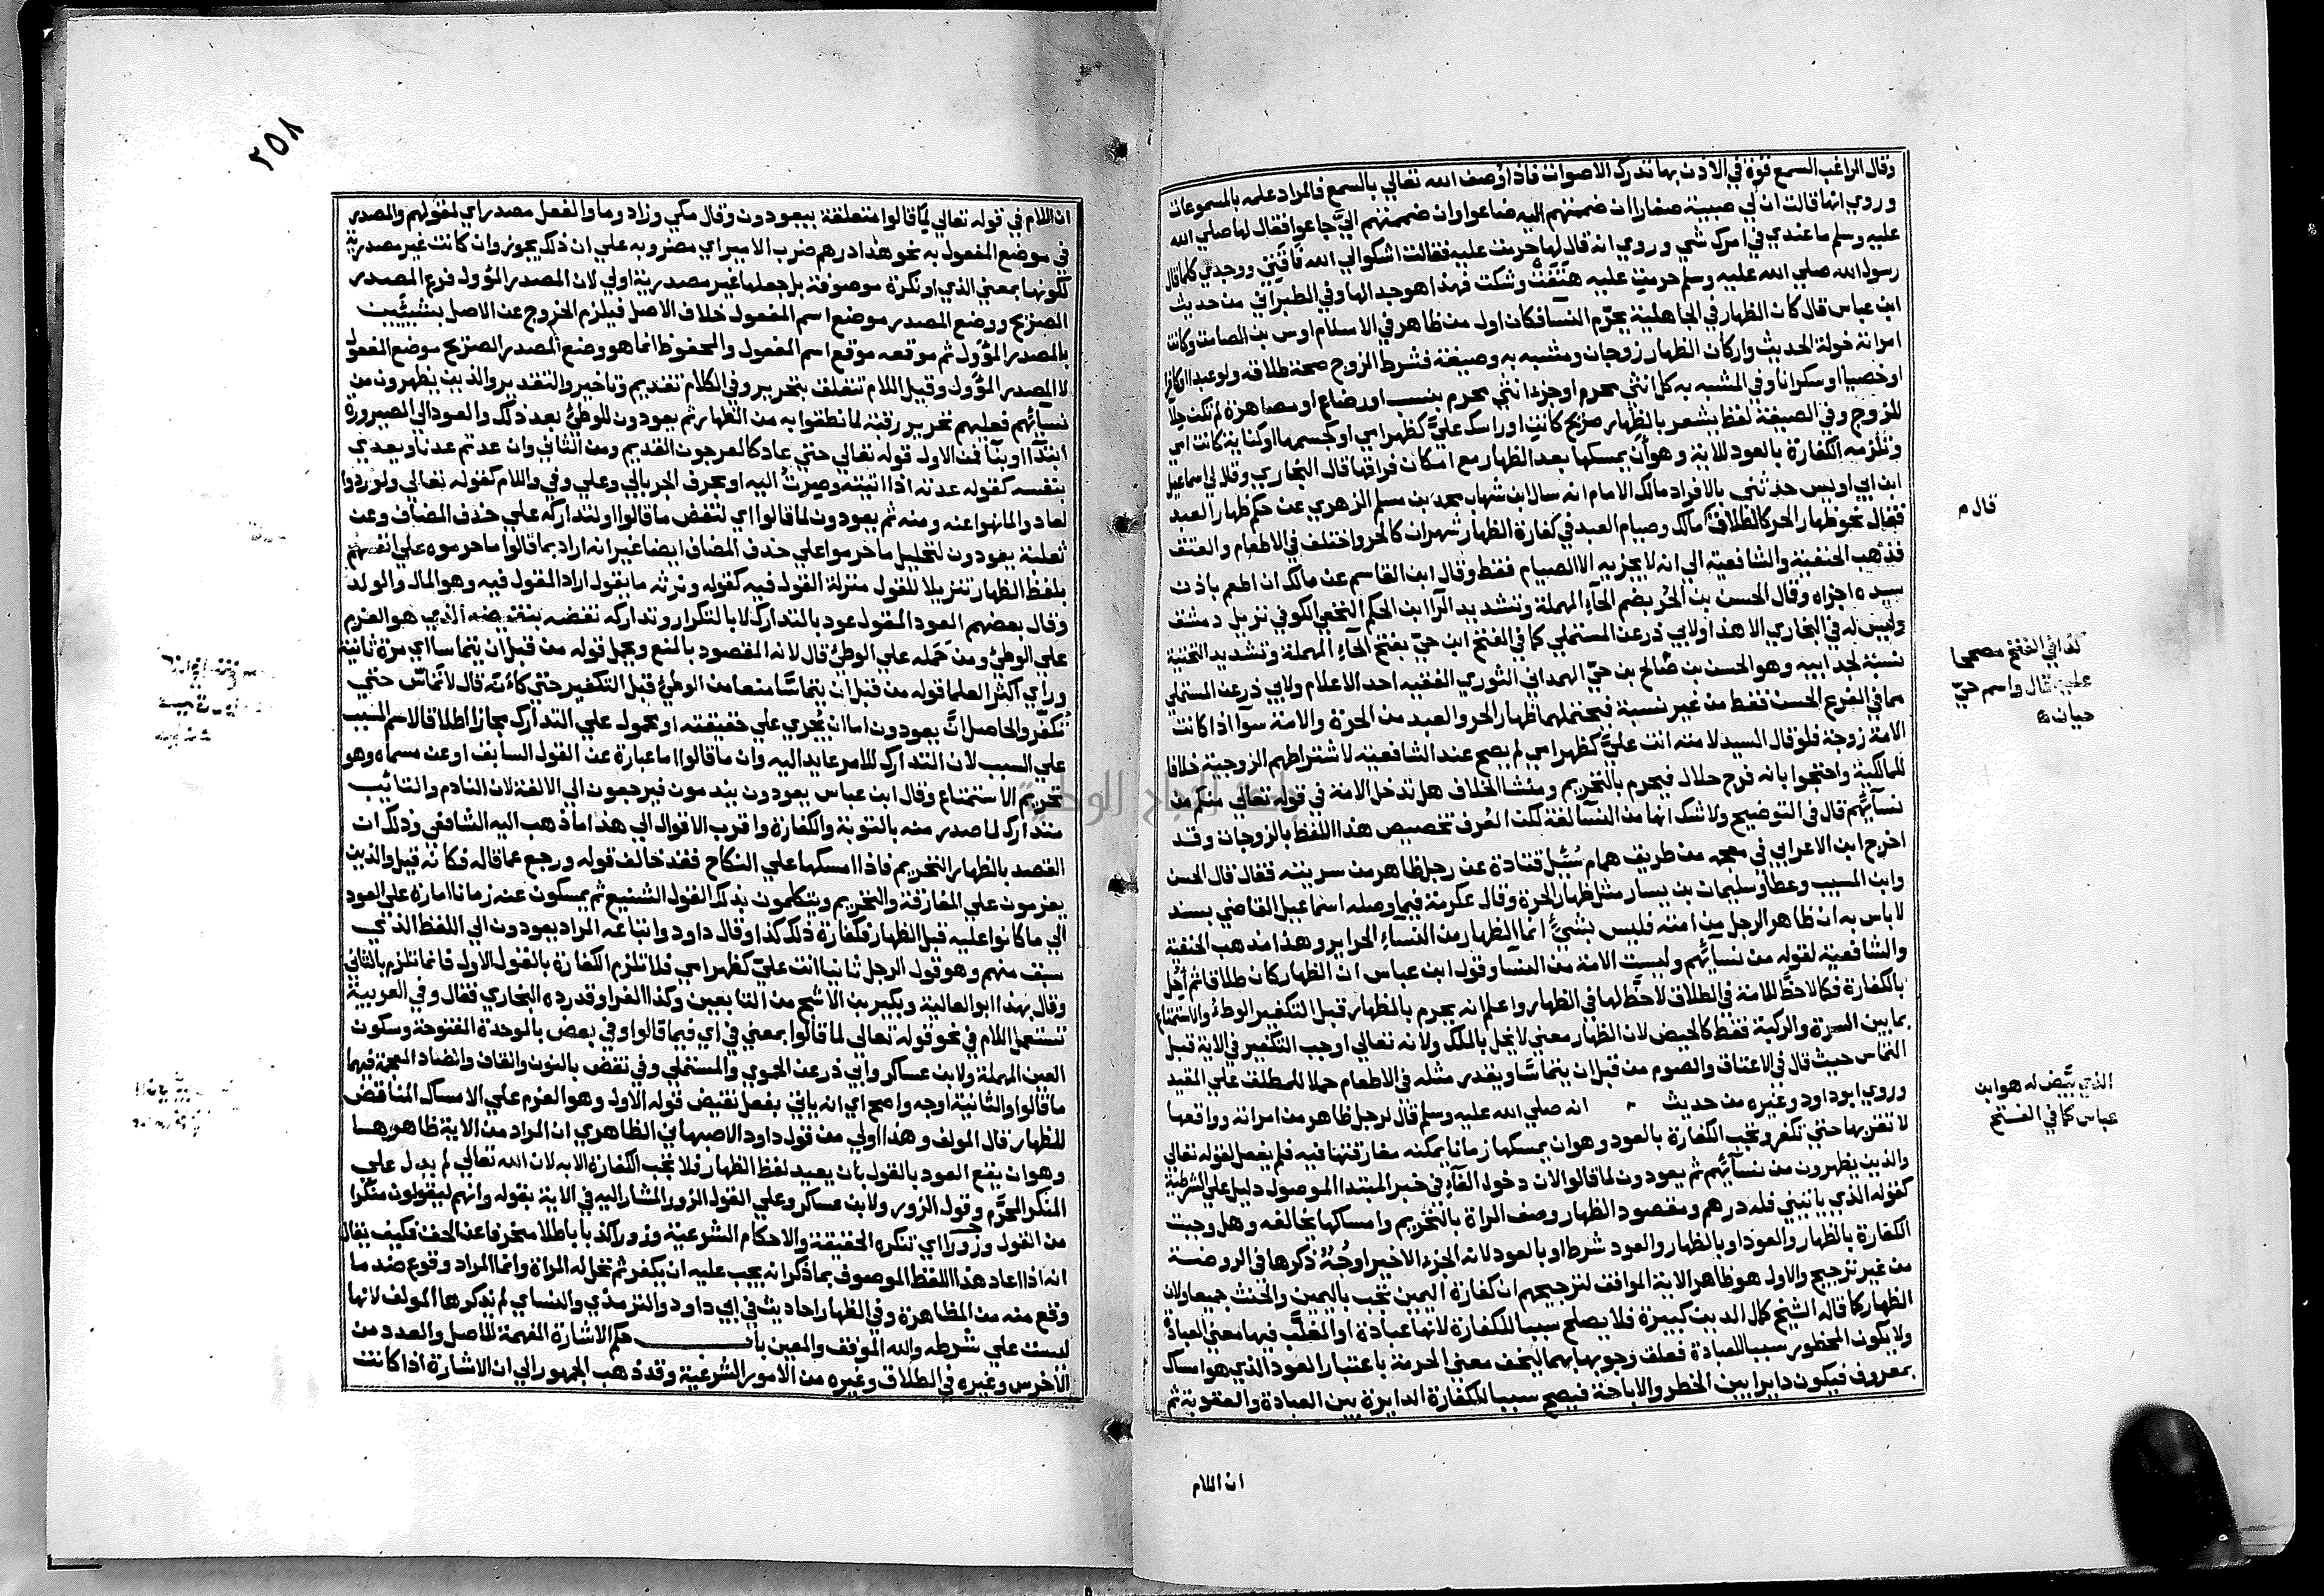 وقال الراغب السمع قوة في الاذن بها تدرك الاصوات فاذا وصف الله تعالي بالسمع فالمراد علمه بالمسموعات
وروي انها قالت ان لي صبية صغارا ان ضممتهم اليه ضاعوا وان ضممتهم اليّ جاعوا فقال لها صلي الله
عليه وسلم ما عندي في امرك شي وروي انه قال لها حرمت عليه فقالت اشكوا الي الله فاقتي ووجدي كلما قال
رسول الله صلي الله عليه وسلم حرمت عليه هتفت وشكت فهذا هو جدالها وفي الطبراني من حديث
ابن عباس قال كان الظهار في الجاهلية يحرّم النسا فكان اول من ظاهر في الاسلام اوس بن الصامت وكانت
امراته خولة الحديث واركان الظهار زوجان ومشبه به وصيغة فشرط الزوج صحة طلاقه ولو عبدا اوكافرا
اوخصيا اوسكرانا وفي المشبه به كل انثي محرم اوجزء انثي محرم بنسب اورضاع اومصاهرة لم تكن حلا
للزوج وفي الصيغة لفظ يشعر بالظهار صريح كانت اوراسك عليّ كظهر امي اوكجسمها اوكناية كانت امي
وتلزمه الكفارة بالعود للاية وهو أن يمسكها بعد الظهار مع امكان فراقها قال البخاري وقال لي اسماعيل
ابن ابي اويس حدثني بالافراد مالك الامام انه سال ابن شهاب محمد بن مسلم الزهري عن حكم ظهار العبد
فقال نحو ظهار الحر كالطلاق مالك وصيام العبد في كفارة الظهار شهران كالحر واختلف في الاطعام والعتق
قال م
فذهب الحنفية والشافعية الي انه لا يجزيه الا الصيام فقط وقال ابن القاسم عن مالك ان اطعم باذن
سيده اجزاه وقال الحسن بن الحُر بضم الحاء المهملة وتشديد الرا ابن الحكم النخعي الكوفي نزيل دمشق
وليس له في البخاري الا هذا ولابي ذر عن المستملي كما في الفتح ابن حيّ بفتح الحاء المهملة وتشديد التحتية
كذا في الفتح مصححا
عليه قال واسم حيّ
حيان ه
نسبة لجد ابيه وهو الحسن بن صالح بن حيّ الهمداني الثوري الفقيه احد الاعلام ولابي ذر عن المستملي
مما في الفرع الحسن فقط من غير نسبة فيحتملهما ظهار الحر والعبد من الحرة والامة سوآ اذا كانت
الامة زوجة فلو قال السيد لامته انت عليّ كظهر امي لم يصح عند الشافعية لاشتراطهم الزوجية خلافا
للمالكية واحتجوا بانه فرج حلال فيحرم بالتحريم ومنشا الخلاف هل تدخل الامة في قوله تعالي منكم من
نسآئهم قال في التوضيح ولا شك انها من النسآ لغة لكن العُرف تخصيص هذا اللفظ بالزوجات وقد
اخرج ابن الاعرابي في معجمه من طريق همام سُئل قتادة عن رجل ظاهر من سريته فقال قال الحسن
وابن المسيب وعطا وسليمان بن يسار مثل ظهار الحرة وقال عكرمة فيما وصله اسماعيل القاضي بسند
لاباس به ان ظاهر الرجل من امته فليس بشئ انما الظهار من النساء الحراير وهذا مذهب الحنفية
والشافعية لقوله من نسآئهم وليست الامة من النسا وقول ابن عباس ان الظهار كان طلاقا ثم اُحل
بالكفارة فكما لا حظّ للامة في الطلاق لا حظّ لها في الظهار واعلم انه يحرم بالظهار قبل التكفير الوطء والاستمتاع
بما بين السرة والركبة فقط كالحيض لان الظهار معني لا يخل بالملك ولانه تعالي اوجب التكفير في الاية قبل
التماس حيث قال في الاعتاق والصوم من قبل ان يتماسّا ويقدر مثله في الاطعام حملا للمطلق علي المقيد
وروي ابو داود وغيره من حديث انه صلي الله عليه وسلم قال لرجل ظاهر من امراته وواقعها
الذي بيّض له هو ابن
عباس كما في الفتح
لا تقربها حتي تكفر وتجب الكفارة بالعود وهو ان يمسكها زمانا يمكنه مفارقتها فيه فلم يفعل لقوله تعالي
والذين يظهرون من نسآئهم ثم يعودون لما قالوا الان دخول الفآء في خبر المبتدا الموصول دليل علي الشرطية
كقوله الذي ياتيني فله درهم ومقصود الظهار وصف المراة بالتحريم وامساكها يخالفه وهل وجبت
الكفارة بالظهار والعود او بالظهار والعود شرط او بالعود لانه الجزء الاخير اوجُهٌ ذكرها في الروضة
من غير ترجيح والاول هو ظاهر الاية الموافق لترجيحهم ان كفارة اليمين تجب باليمين والحنث جميعا ولان
الظهار كما قاله الشيخ كمال الدين كبيرة فلا يصلح سببا للكفارة لانها عبادة او المغلَّب فيها معني العبادة
ولا يكون المحظور سببا للعبادة فعلق وجوبها بهما ليخف معني الحرمة باعتبار العود الذي هو امساك
بمعروف فيكون دايرا بين الحظر والاباحة فيصح سببا للكفارة الدايرة بين العبادة والعقوبة ثم
ان اللام
٢٥٨
ان اللام في قوله تعالي لما قالوا متعلقة بيعودون وقال مكي وزاد وما والفعل مصدر اي لمقولهم والمصدر
في موضع المفعول به نحو هذا درهم ضرب الامير اي مضروبه علي ان ذلك يجوز وان كانت غير مصدرية
لكونها بمعني الذي او نكرة موصوفة بل جعلها غير مصدرية اولي لان المصدر المؤول فرع المصدر
الصريح ووضع المصدر موضع اسم المفعول خلاف الاصل فيلزم الخروج عن الاصل بشيئين
بالمصدر المؤول ثم موقعه موقع اسم المفعول والمحفوظ انما هو وضع المصدر الصريح موضع المفعول
لا المصدر المؤول وقيل اللام تتعلق بتحرير وفي الكلام تقديم وتاخير والتقدير والذين يظهرون من
نسآئهم فعليهم تحرير رقبة لما نطقوا به من الظهار ثم يعودون للوطئ بعد ذلك والعود الي الصيرورة
ابتدآ او بنآ فمن الاول قوله تعالي حتي عاد كالعرجون القديم ومن الثاني وان عدتم عدنا ويعدي
بنفسه كقوله عدته اذا اتيته وصرتُ اليه او بحرف الجر بالي وعلي وفي واللام كقوله تعالي ولو ردوا
لعادوا لما نهوا عنه ومنه ثم يعودون لما قالوا اي لنقض ما قالوا اولتداركه علي حذف المضاف وعن
ثعلبة يعودون لتحليل ما حرموا علي حذف المضاف ايضا غير انه اراد بما قالوا ما حرموه علي انفسهم
بلفظ الظهار تنزيلا للقول منزلة القول فيه كقوله ونرثه ما يقول اراد المقول فيه وهو المال والولد
وقال بعضهم العود المقول عود بالتدارك لا بالتكرار وتداركه نقضه بنقيضه الذي هو العزم
علي الوطئ ومن حَمَله علي الوطئ قال لانه المقصود بالمنع ويحمل قوله من قبل ان يتماسا اي مرة ثانية
وراي اكثر العلما قوله من قبل ان يتماسّا منعا من الوطئ قبل التكفير حتي كانه قال لا تماسّ حتي
تُكفّر والحاصل انّ يعودون اما ان يُجري علي حقيقته او محمول علي التدارك مجازا اطلاقا لاسم المسبب
علي السبب لان التدارك للامر عايد اليه وان ما قالوا اما عبارة عن القول السابق او عن مسماه وهو
تحريم الاستمتاع وقال ابن عباس يعودون يندمون فيرجعون الي الالفة لان النادم والتائب
متدارك لما صدر منه بالتوبة والكفارة واقرب الاقوال الي هذا ما ذهب اليه الشافعي وذلك ان
القصد بالظهار التحريم فاذا امسكها علي النكاح فقد خالف قوله ورجع عما قاله فكانه قيل والذين
يعزمون علي المفارقة والتحريم ويتكلمون بذلك القول الشنيع ثم يمسكون عنه زمانا امارة علي العود
الي ما كانوا عليه قبل الظهار فكفارة ذلك كذا وقال داود واتباعه المراد يعودون الي اللفظ الذي
سبق منهم وهو قول الرجل ثانيا انت عليّ كظهر امي فلا تلزم الكفارة بالقول الاول فانما تلزم بالثاني
وقال بهذا ابو العالية وبكير بن الاشج من التابعين وكذا الفرا وقد رده البخاري فقال وفي العربية
تستعمل اللام في نحو قوله تعالي لما قالوا بمعني في اي فيما قالوا وفي بعض بالموحدة المفتوحة وسكون
العين المهملة ولابن عساكر وابي ذر عن الحموي والمستملي وفي نقض بالنون والقاف والضاد المعجمة فيهما
ما قالوا والثانية اوجه واصح اي انه ياتي بفعل نقيض قوله الاول وهو العزم علي الامساك المناقض
للظهار قال المولف وهذا اولي من قول داود الاصبهاني الظاهري ان المراد من الاية ظاهرها
وهو ان يقع العود بالقول بان يعيد لفظ الظهار فلا تجب الكفارة الا به لان الله تعالي لم يدل علي
المنكر المحرَّم وقول الزور ولابن عساكر وعلي القول الزور المشار اليه في الاية بقوله وانهم ليقولون منكرا
من القول وزورا اي تنكره الحقيقة والاحكام الشرعية وزورا كذبا باطلا منحرفا عن الحق فكيف يقال
انه اذا اعاد هذا اللفظ الموصوف بما ذكر انه يجب عليه ان يكفر ثم تحل له المراة وانما المراد وقوع ضد ما
وقع منه من المظاهرة وفي الظهار احاديث في ابي داود والترمذي والنساي لم يذكرها المولف لانها
ليست علي شرطه والله الموفق والمعين باب حكم الاشارة المفهمة للاصل والعدد من
الاخرس وغيره في الطلاق وغيره من الامور الشرعية وقد ذهب الجمهور الي ان الاشارة اذا كانت